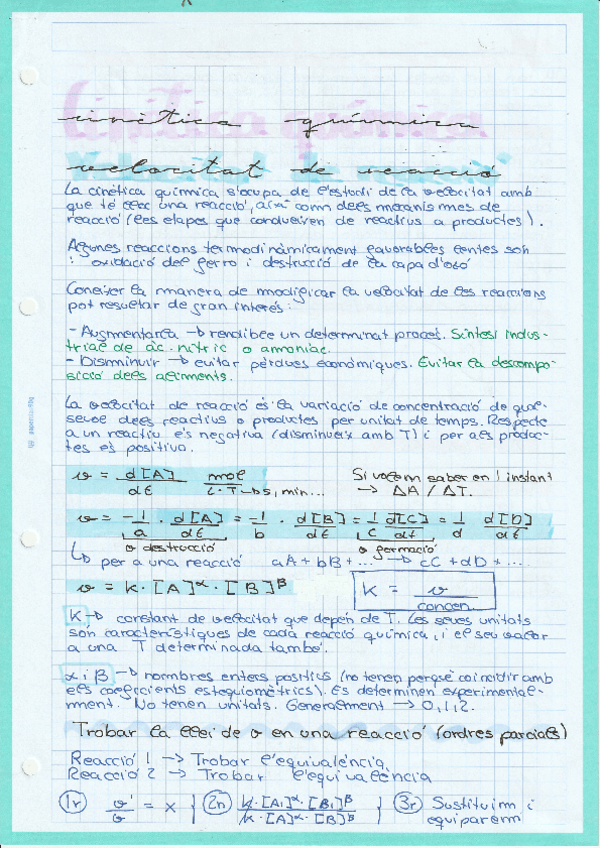 Cinètica química
velocitat de reacció
La cinètica química s'ocupa de l'estudi de la velocitat amb
que té lloc una reacció, així com dels mecanismes de
reacció (les etapes que condueixen de reactius a productes).
Algunes reaccions termodinàmicament favorables lentes són
: oxidació del ferro i destrucció de la capa d'ozó
Conèixer la manera de modificar la velocitat de les reaccions
pot resultar de gran interès:
- Augmentarla → rendible un determinat procés. Síntesi indus-
trial de àc. nítric o amoníac.
- Disminuir → evitar pèrdues econòmiques. Evitar la descompo-
sició dels aliments.
La velocitat de reacció és la variació de concentració de qual-
sevol dels reactius o productes per unitat de temps. Respecte
a un reactiu és negativa (disminueix amb T) i per als produc-
tes és positiva.
v = d[A] / dt mol / L · T → s, min... Si volem saber en 1 instant
→ ΔA / ΔT.
v = -1/a · d[A]/dt = -1/b · d[B]/dt = 1/c d[C]/dt = 1/d d[D]/dt
v destrucció v formació
↳ per a una reacció aA + bB + ... → cC + dD + ...
v = k · [A]^α · [B]^β K = v / concen.
K → constant de velocitat que depén de T. Les seves unitats
són característiques de cada reacció química, i el seu valor
a una T determinada també.
α i β → nombres enters positius (no tenen perquè coincidir amb
els coeficients estequiomètrics). Es determinen experimental-
ment. No tenen unitats. Generalment → 0,1,2.
Trobar la llei de v en una reacció (ordres parcials)
Reacció 1 → Trobar l'equivalència
Reacció 2 → Trobar l'equivalència
1r v'/v = x } 2n k·[A₁]^α·[B₁]^β / k·[A]^α·[B]^β } 3r Sustituim i
equiparem